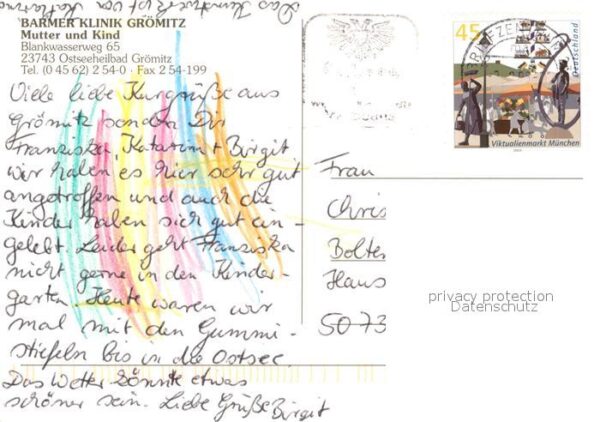 Das Kunstwerk ist von Katarina
BARMER KLINIK GRÖMITZ
Mutter und Kind
Blankwasserweg 65
23743 Ostseeheilbad Grömitz
Tel. (0 45 62) 2 54-0 · Fax 2 54-199
Viele liebe Kurgrüße aus
Grömitz senden Dir
Franziska, Katarina + Birgit
wir haben es hier sehr gut
angetroffen und auch die
Kinder haben sich gut ein-
gelebt. Leider geht Franziska
nicht gerne in den Kinder-
garten. Heute waren wir
mal mit den Gummi-
stiefeln bis in die Ostsee.
Das Wetter könnte etwas
schöner sein. Liebe Grüße Birgit
45
Deutschland
BRIEFZENTRUM
Viktualienmarkt München
Frau
Chris
Bolte
Haus
5073
privacy protection
Datenschutz